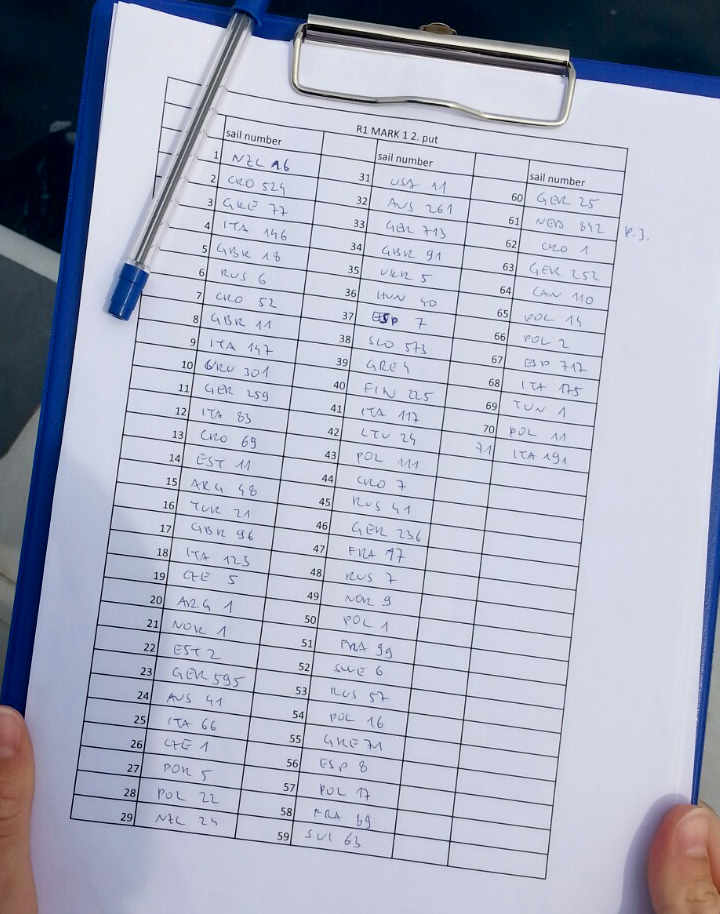 R1 MARK 1 2. put
sail number
1 NZL 16
2 CRO 524
3 GRE 77
4 ITA 146
5 GBR 18
6 RUS 6
7 CRO 52
8 GBR 11
9 ITA 147
10 URU 301
11 GER 259
12 ITA 83
13 CRO 69
14 EST 11
15 ARG 48
16 TUR 21
17 GBR 96
18 ITA 123
19 CZE 5
20 ARG 1
21 NOR 1
22 EST 2
23 GER 595
24 AUS 41
25 ITA 66
26 CZE 1
27 POR 5
28 POL 22
29 NZL 24
sail number
31 USA 11
32 AUS 261
33 GER 713
34 GBR 91
35 UKR 5
36 HUN 40
37 ESP 7
38 SLO 573
39 GRE 4
40 FIN 225
41 ITA 117
42 LTU 24
43 POL 111
44 CRO 7
45 RUS 41
46 GER 236
47 FRA 17
48 RUS 7
49 NOR 9
50 POL 1
51 FRA 99
52 SWE 6
53 RUS 57
54 POL 16
55 GRE 71
56 ESP 8
57 POL 17
58 FRA 69
59 SUI 63
sail number
60 GER 25
61 NED 842 P.J.
62 CRO 1
63 GER 252
64 CAN 110
65 POL 14
66 POL 2
67 ESP 717
68 ITA 175
69 TUN 1
70 POL 11
71 ITA 191